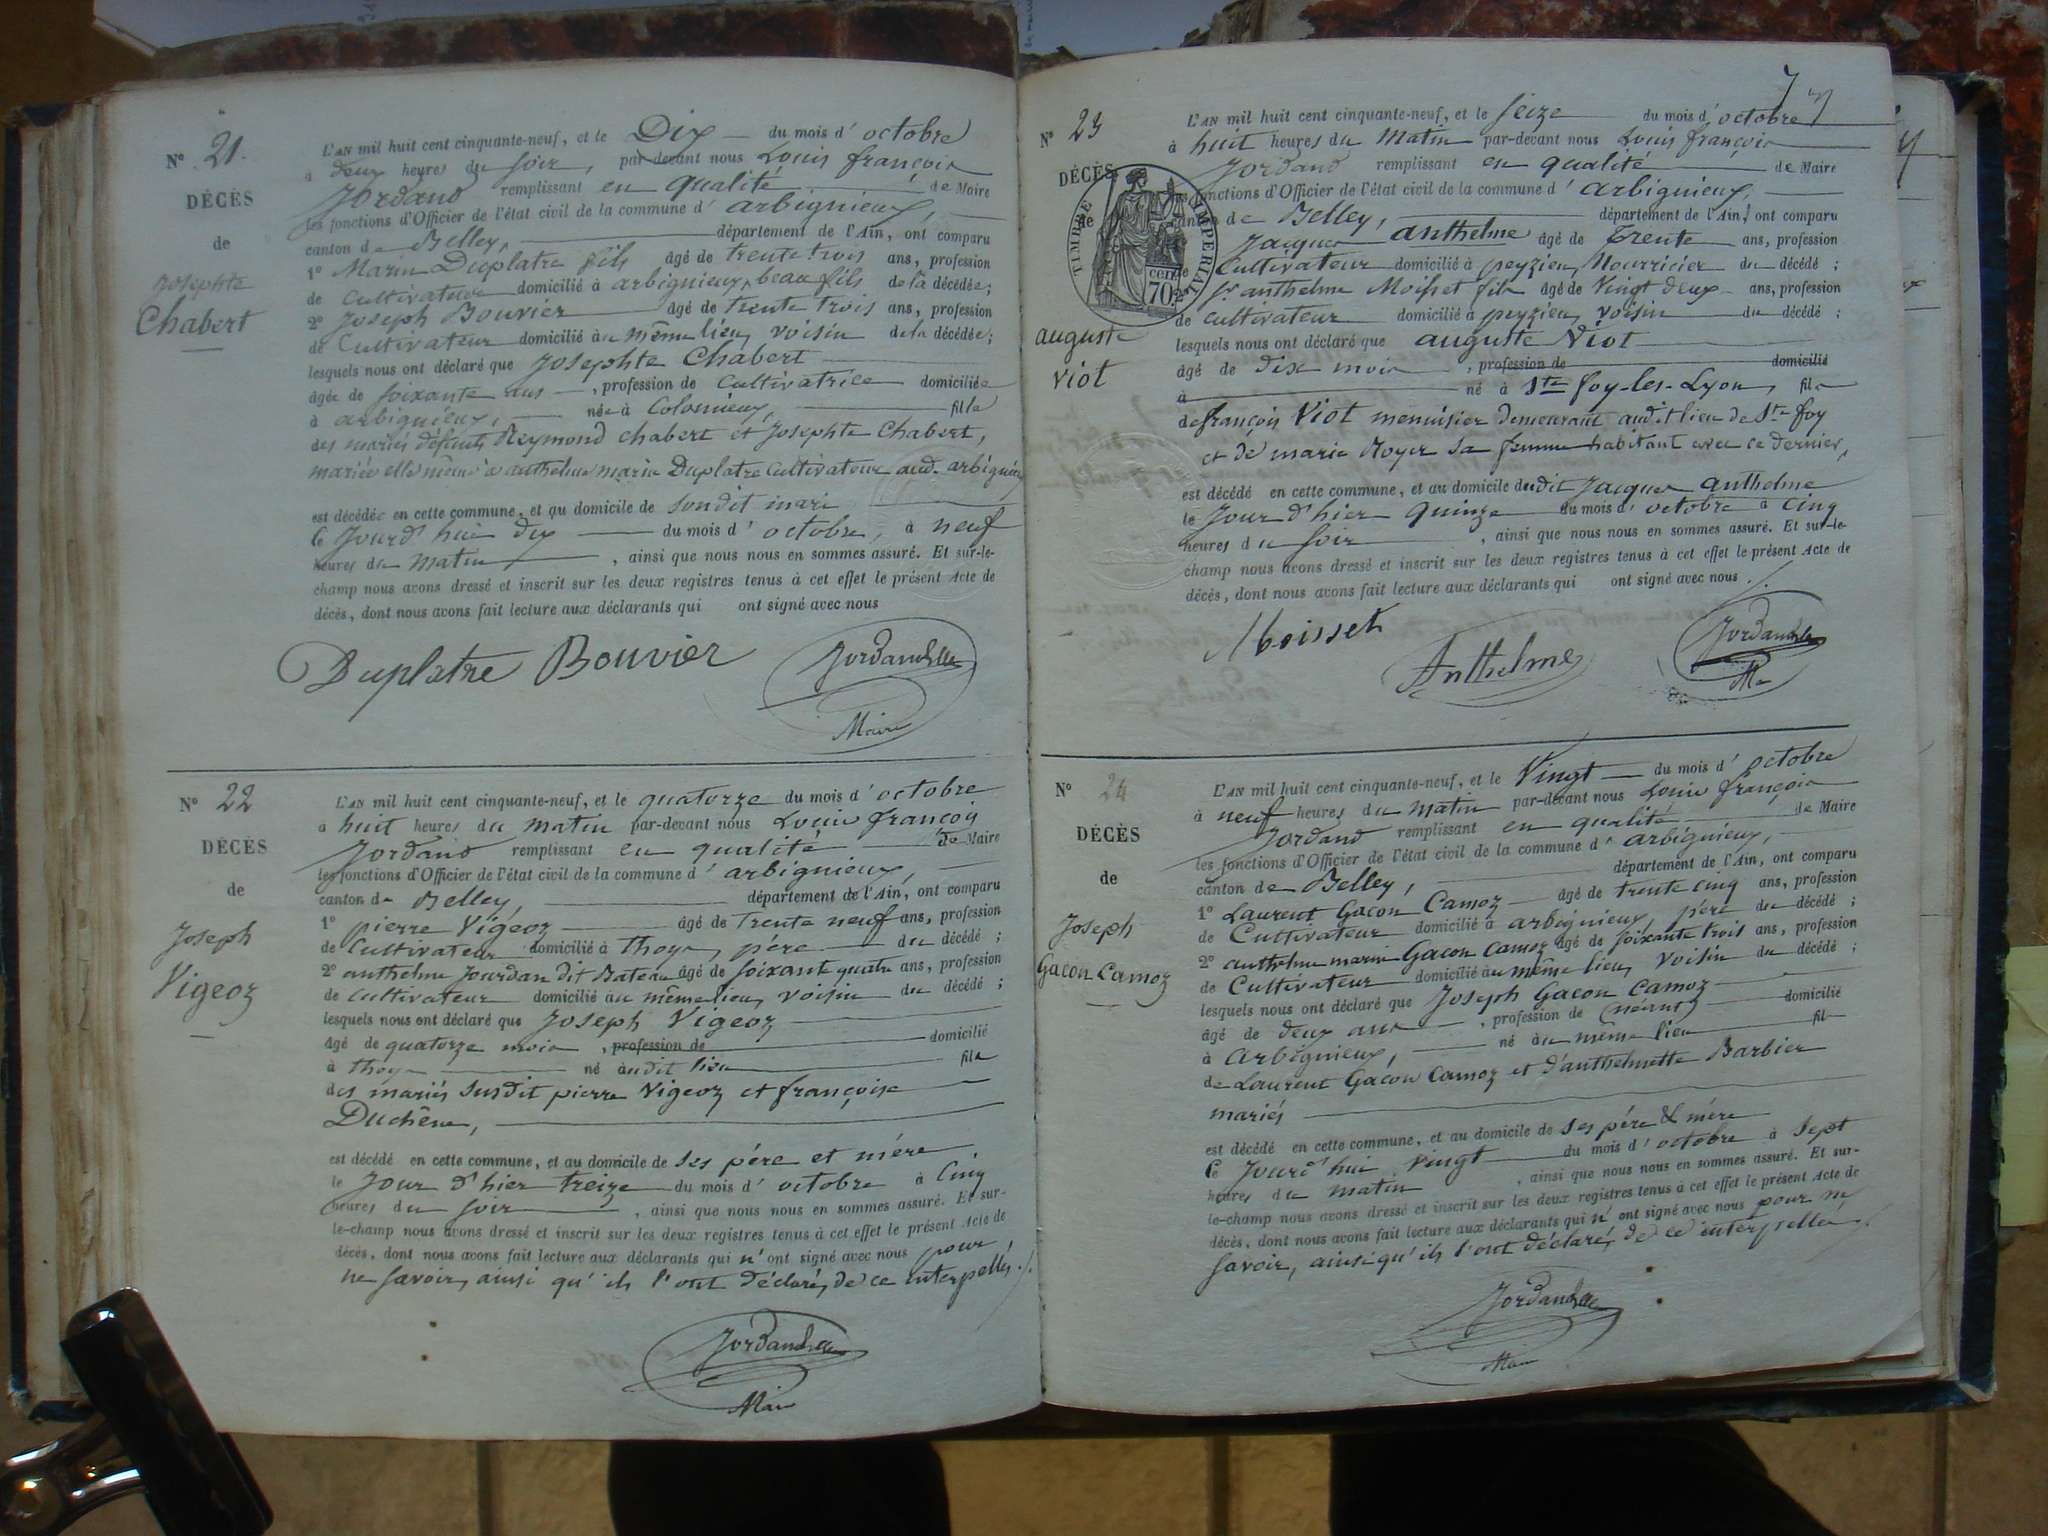 N° 21.
DÉCÈS
de
Josephte
Chabert
L'AN mil huit cent cinquante-neuf, et le Dix du mois d' octobre
à deux heures du soir, par-devant nous Louis françois
Jordand remplissant en qualité de Maire
les fonctions d'Officier de l'état civil de la commune d' arbignieux,
canton de Belley, département de l'Ain, ont comparu
1° Marin Duplatre fils âgé de trente trois ans, profession
de Cultivateur domicilié à arbignieux, beau fils de la décédée;
2° Joseph Bouvier âgé de trente trois ans, profession
de Cultivateur domicilié au même lieu, voisin de la décédée;
lesquels nous ont déclaré que Josephte Chabert
âgée de soixante ans, profession de cultivatrice domiciliée
à arbignieux, née à Colomieux, fille
des mariés défunts Reymond chabert et Josephte Chabert,
mariée elle même à anthelme marin Duplatre cultivateur aud. arbignieux
est décédée en cette commune, et au domicile de sondit mari
le Jourd'hui dix du mois d' octobre, à neuf
heures du matin, ainsi que nous nous en sommes assuré. Et sur-le-
champ nous avons dressé et inscrit sur les deux registres tenus à cet effet le présent Acte de
décès, dont nous avons fait lecture aux déclarants qui ont signé avec nous
Duplatre Bouvier Jordand
Maire
N° 22
DÉCÈS
de
Joseph
Vigeoz
L'AN mil huit cent cinquante-neuf, et le quatorze du mois d' octobre
à huit heures du matin par-devant nous Louis françois
Jordand remplissant en qualité de Maire
les fonctions d'Officier de l'état civil de la commune d' arbignieux,
canton de Belley, département de l'Ain, ont comparu
1° pierre Vigeoz âgé de trente neuf ans, profession
de Cultivateur domicilié à thoys, père du décédé;
2° anthelme Jourdan dit Bateau âgé de soixante quatre ans, profession
de cultivateur domicilié au même lieu, voisin du décédé;
lesquels nous ont déclaré que Joseph Vigeoz
âgé de quatorze mois, profession de domicilié
à thoys né audit lieu fils
des mariés susdit pierre Vigeoz et françoise
Duchêne,
est décédé en cette commune, et au domicile de ses père et mère
le Jour d'hier treize du mois d' octobre à Cinq
heures du soir, ainsi que nous nous en sommes assuré. Et sur-
le-champ nous avons dressé et inscrit sur les deux registres tenus à cet effet le présent Acte de
décès, dont nous avons fait lecture aux déclarants qui n'ont signé avec nous pour
ne savoir, ainsi qu'ils l'ont déclaré, de ce interpellés./.
Jordand
Maire
N° 23
DÉCÈS
de
TIMBRE IMPÉRIAL
70
auguste
Viot
L'AN mil huit cent cinquante-neuf, et le seize du mois d' octobre
à huit heures du matin par-devant nous Louis françois
Jordand remplissant en qualité de Maire
les fonctions d'Officier de l'état civil de la commune d' arbignieux,
canton de Belley, département de l'Ain, ont comparu
Jacques anthelme âgé de trente ans, profession
de Cultivateur domicilié à peyzieu, Nourricier du décédé;
2° anthelme Moisset fils âgé de Vingt deux ans, profession
de cultivateur domicilié à peyzieu, voisin du décédé;
lesquels nous ont déclaré que auguste Viot
âgé de dix mois, profession de domicilié
à né à Ste foy-les-Lyon, fils
de françois Viot menuisier demeurant audit lieu de Ste foy
et de marie Royer sa femme habitant avec ce dernier,
est décédé en cette commune, et au domicile dudit Jacques anthelme
le Jour d'hier quinze du mois d' octobre à cinq
heures du soir, ainsi que nous nous en sommes assuré. Et sur-le-
champ nous avons dressé et inscrit sur les deux registres tenus à cet effet le présent Acte de
décès, dont nous avons fait lecture aux déclarants qui ont signé avec nous./.
Moisset Anthelme Jordand
N° 24
DÉCÈS
de
Joseph
Gacon Camoz
L'AN mil huit cent cinquante-neuf, et le Vingt du mois d' octobre
à neuf heures du matin par-devant nous Louis françois
Jordand remplissant en qualité de Maire
les fonctions d'Officier de l'état civil de la commune d' arbignieux,
canton de Belley, département de l'Ain, ont comparu
1° Laurent Gacon Camoz âgé de trente cinq ans, profession
de Cultivateur domicilié à arbignieux, père du décédé;
2° anthelme marin Gacon Camoz âgé de soixante trois ans, profession
de Cultivateur domicilié au même lieu, voisin du décédé;
lesquels nous ont déclaré que Joseph Gacon Camoz
âgé de deux ans, profession de (néant) domicilié
à Arbignieux, né au même lieu fils
de Laurent Gacon Camoz et d'anthelmette Barbier
mariés
est décédé en cette commune, et au domicile de ses père & mère
le Jourd'hui vingt du mois d' octobre à sept
heures du matin, ainsi que nous nous en sommes assuré. Et sur-
le-champ nous avons dressé et inscrit sur les deux registres tenus à cet effet le présent Acte de
décès, dont nous avons fait lecture aux déclarants qui n'ont signé avec nous pour ne
savoir, ainsi qu'ils l'ont déclaré, de ce interpellés./.
Jordand
Maire